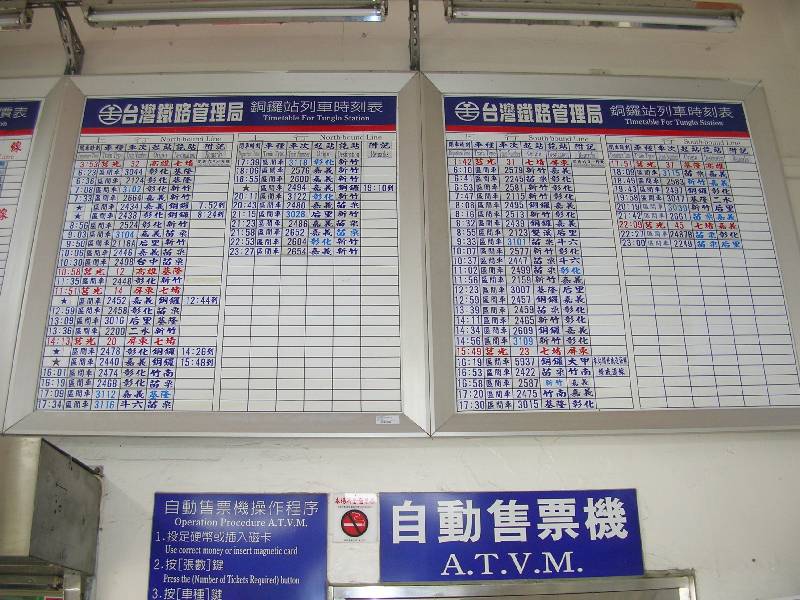 價表
線
線
台灣鐵路管理局 銅鑼站列車時刻表
Timetable For Tunglo Station
Northbound Line Northbound Line
開車時刻 車種 車次 起站 終站 附記 開車時刻 車種 車次 起站 終站 附記
3:53 莒光 52 高雄 七堵
6:23 區間車 3044 彰化 基隆
6:36 區間車 2124 彰化 基隆
7:08 區間車 3102 彰化 新竹
7:33 區間車 2664 嘉義 新竹
★ 區間車 2434 嘉義 銅鑼 7:52到
★ 區間車 2438 彰化 銅鑼 8:24到
8:56 區間車 2524 彰化 新竹
9:03 區間車 3104 嘉義 苗栗
9:50 區間車 2118A 后里 新竹
10:06 區間車 2446 嘉義 苗栗
10:30 區間車 2498 台中 苗栗
10:58 莒光 12 高雄 基隆
11:35 區間車 2448 嘉義 新竹
11:51 莒光 14 屏東 七堵
★ 區間車 2452 嘉義 銅鑼 12:44到
12:59 區間車 2458 彰化 苗栗
13:09 區間車 3016 后里 基隆
13:36 區間車 2200 二水 新竹
14:13 莒光 20 屏東 七堵
★ 區間車 2478 彰化 銅鑼 14:26到
★ 區間車 2440 嘉義 銅鑼 15:48到
16:01 區間車 2474 彰化 竹南
16:19 區間車 2468 彰化 苗栗
17:09 區間車 3112 嘉義 基隆
17:34 區間車 3116 斗六 苗栗
17:39 區間車 3118 彰化
18:06 區間車 2576 嘉義 新竹
18:55 區間車 2600 嘉義 新竹
★ 區間車 2494 嘉義 銅鑼 19:10到
20:11 區間車 3122 彰化 新竹
20:17 區間車 2480 嘉義 新竹
21:15 區間車 3028 后里 新竹
21:23 區間車 2486 嘉義 苗栗
21:58 區間車 2652 嘉義 苗栗
22:53 區間車 2604 彰化 新竹
23:27 區間車 2654 嘉義 新竹
台灣鐵路管理局 銅鑼站列車時刻表
Timetable For Tunglo Station
Southbound Line Southbound Line
開車時刻 車種 車次 起站 終站 附記 開車時刻 車種 車次 起站 終站 附記
1:42 莒光 31 七堵 屏東
6:10 區間車 2579 新竹 嘉義
6:44 區間車 2581 新竹 彰化
7:16 區間車 2511 新竹 彰化
7:47 區間車
8:08 區間車 2495 銅鑼 彰化
8:16 區間車 2513 新竹 彰化
9:32 區間車 2439 銅鑼 嘉義
8:55 區間車 2123
9:33 區間車 3101 苗栗 斗六
10:07 區間車 2577 新竹 嘉義
10:37 區間車 2447
11:02 區間車 2499 苗栗 彰化
11:56 區間車 2159 新竹 嘉義
12:23 區間車 3007 基隆 后里
12:59 區間車 2457 銅鑼 嘉義
13:39 區間車 2459 苗栗 嘉義
14:11 區間車 2465 新竹 彰化
14:34 區間車 2609 銅鑼 嘉義
14:56 區間車 3109 新竹 彰化
15:49 莒光 23 七堵 屏東
16:19 區間車 5937 銅鑼 大甲
16:53 區間車 2422 苗栗 竹南 經成追線
16:58 區間車 2587 新竹 嘉義
17:20 區間車 2475 竹南 嘉義
17:30 區間車 3015 基隆 彰化
17:51 莒光 31 基隆 高雄
18:09 區間車 3115 苗栗 嘉義
18:49 區間車 2583 新竹 嘉義
19:43 區間車
20:19 區間車
21:19 區間車
21:42 區間車 2651 苗栗 嘉義
22:09 莒光 45 七堵 嘉義
22:27 區間車 苗栗 彰化
23:00 區間車 2248 苗栗 后里
自動售票機操作程序
Operation Procedure A.T.V.M.
1.投足硬幣或插入磁卡
Use correct money or insert magnetic card
2.按[張數]鍵
Press the (Number of Tickets Required) button
3.按[車種]鍵
自動售票機
A.T.V.M.